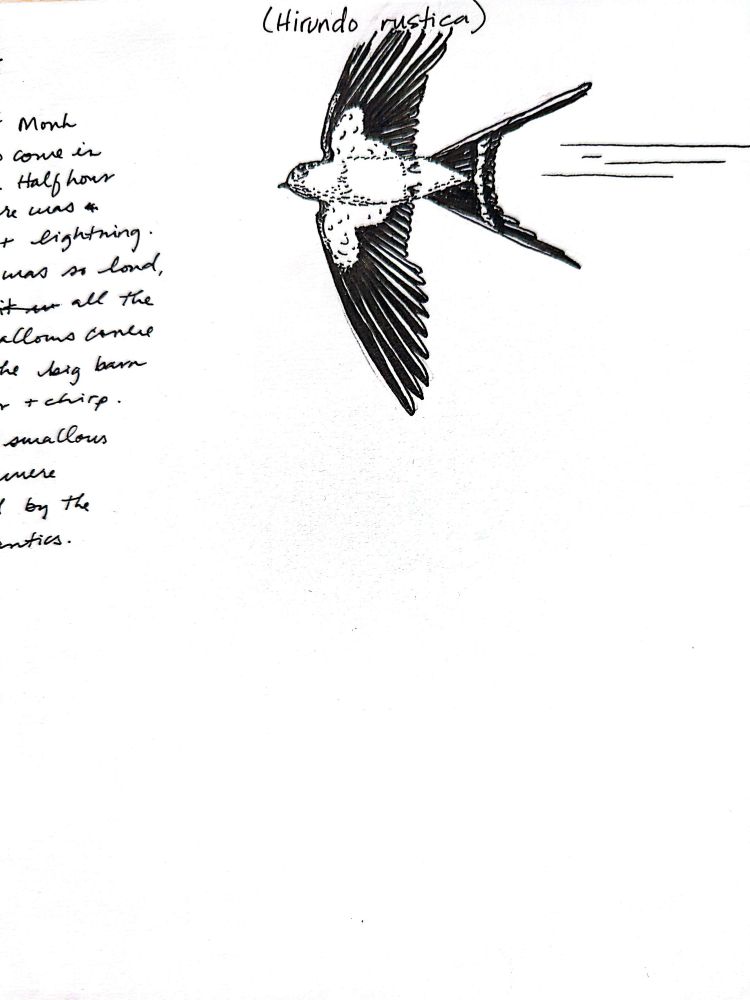 (Hirundo rustica)
Monk
come in
Half hour
re was a
+ lightning.
was so loud,
all the
allows
he big barn
r + chirp.
swallows
were
by the
antics.